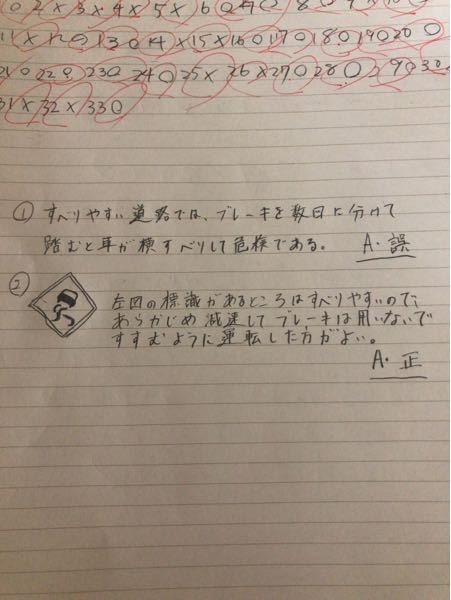 2 × 3 × 4 × 5 × 6 ○
11 × 12 ○ 13 ○ 14 × 15 × 16 ○ 17 ○ 18 ○ 19 ○ 20 ○
22 ○ 23 ○ 24 ○ 25 × 26 × 27 ○ 28 ○ 29 ○ 30
31 × 32 × 33 ○
① すべりやすい道路では、ブレーキを数回に分けて
踏むと車が横すべりして危険である。 A・誤
② 左図の標識があるところはすべりやすいので、
あらかじめ減速してブレーキは用いないで
すすむように運転した方がよい。
A・正